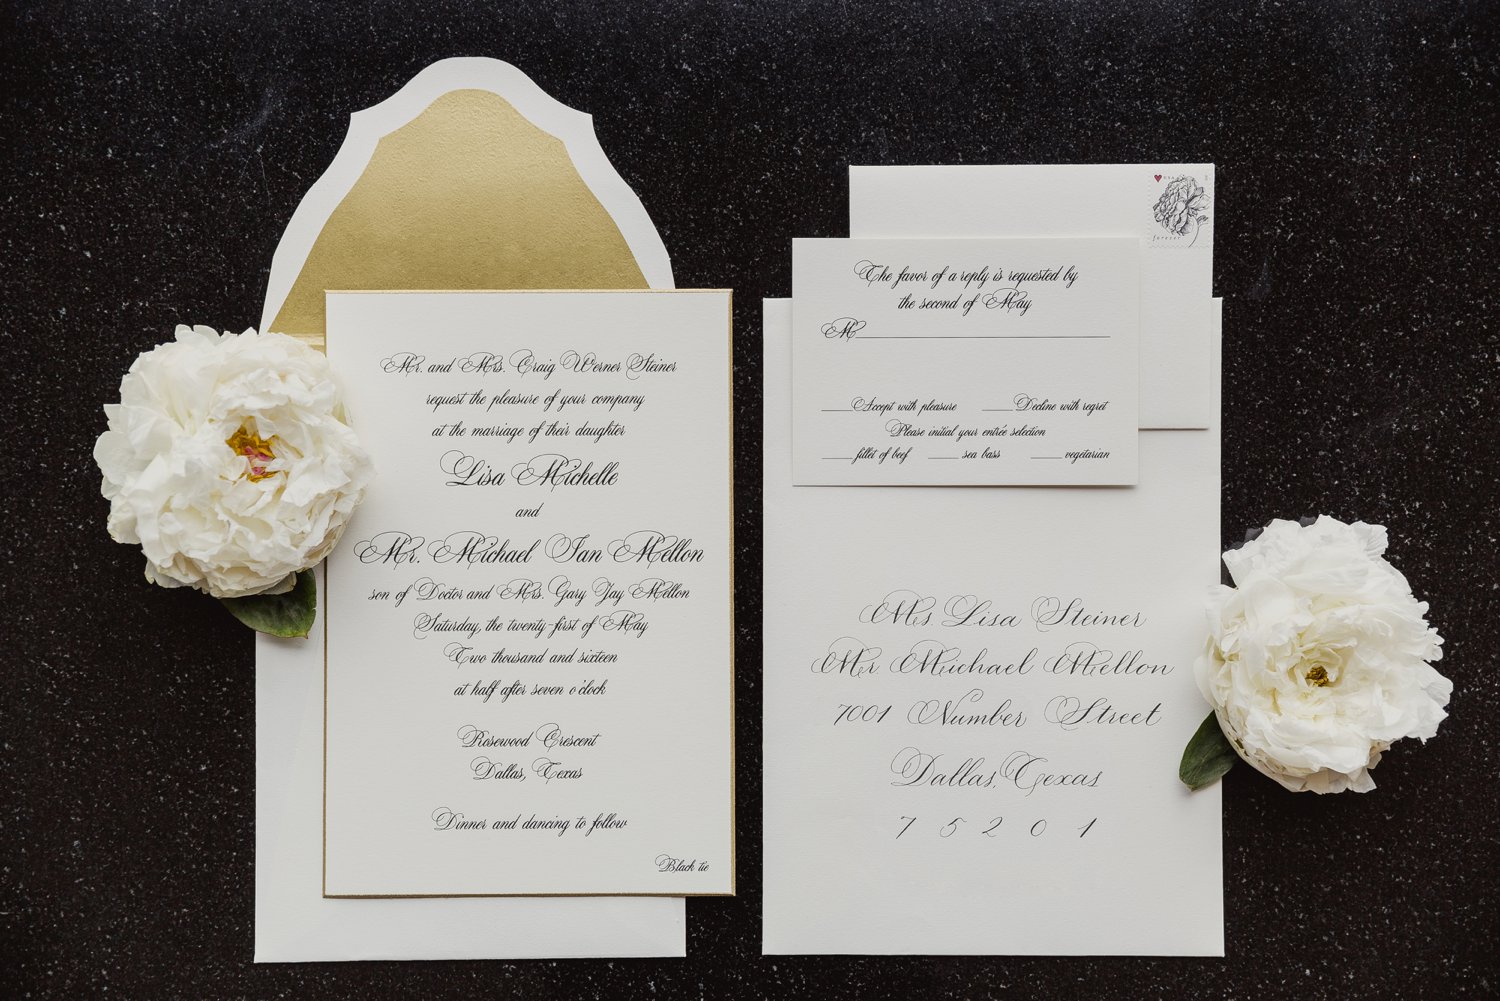 Mr. and Mrs. Craig Werner Steiner
request the pleasure of your company
at the marriage of their daughter
Lisa Michelle
and
Mr. Michael Ian Mellon
son of Doctor and Mrs. Gary Jay Mellon
Saturday, the twenty-first of May
Two thousand and sixteen
at half after seven o'clock
Rosewood Crescent
Dallas, Texas
Dinner and dancing to follow
Black tie
USA
forever
The favor of a reply is requested by
the second of May
M
Accept with pleasure Decline with regret
Please initial your entrée selection
fillet of beef sea bass vegetarian
Ms Lisa Steiner
Mr Michael Mellon
7001 Number Street
Dallas, Texas
7 5 2 0 1